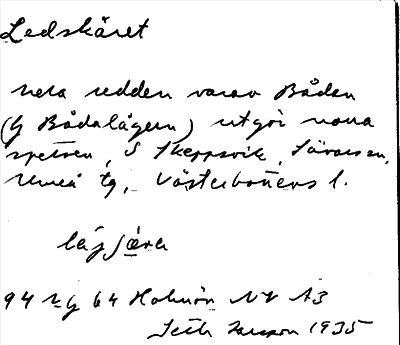 Ledskäret
hela udden varav Bådan
(y Bådalågern) utgör norra
spetsen, S Skeppsvik, Sävarsn,
Umeå tg, Västerbottens l.
läjsära
94 ry 64 Holmön NV A3
Seth Larsson 1935